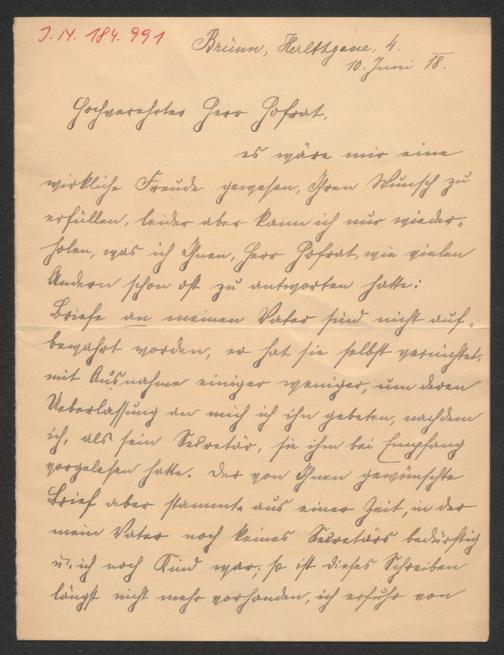 J.N. 184.991
Brünn, 4.
10. Juni 18.
Hochverehrter Herr Hofrat,
es wäre mir eine
wirkliche Freude gewesen, Ihren Wunsch zu
erfüllen, leider aber kann ich nur wieder-
holen, was ich Ihnen, Herr Hofrat, wie vielen
Andern schon oft zu antworten hatte:
Briefe an meinen Vater sind nicht auf-
bewahrt worden, er hat sie selbst vernichtet,
mit Ausnahme einiger weniger, um deren
Ueberlassung an mich ich ihn gebeten, nachdem
ich, als sein Secretär, sie ihm bei Empfang
vorgelesen hatte. Der von Ihnen gewünschte
Brief aber stammte aus einer Zeit, in der
mein Vater noch keines Secretärs bedürftig
u. ich noch Kind war; so ist dieses Schreiben
längst nicht mehr vorhanden, ich erfuhr von